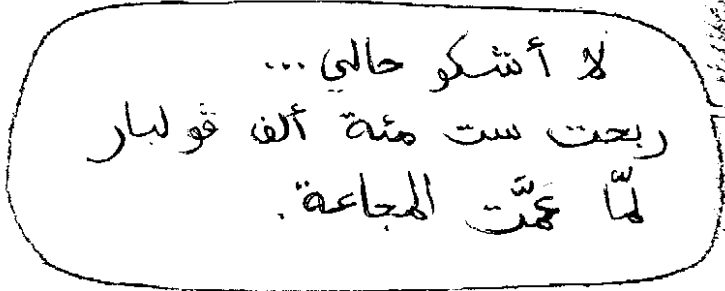 لا أشكو حالي...
ربحت ست مئة ألف فولبار
لمّا عمَّت المجاعة.